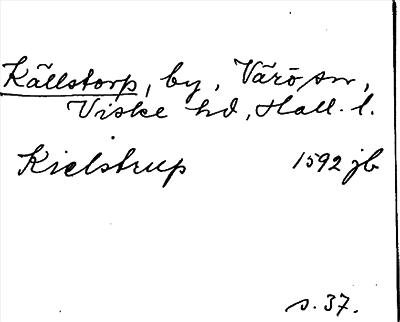 Källstorp, by, Värö sn,
Viske hd, Hall. l.
Kielstrup 1592 jb
s. 37.